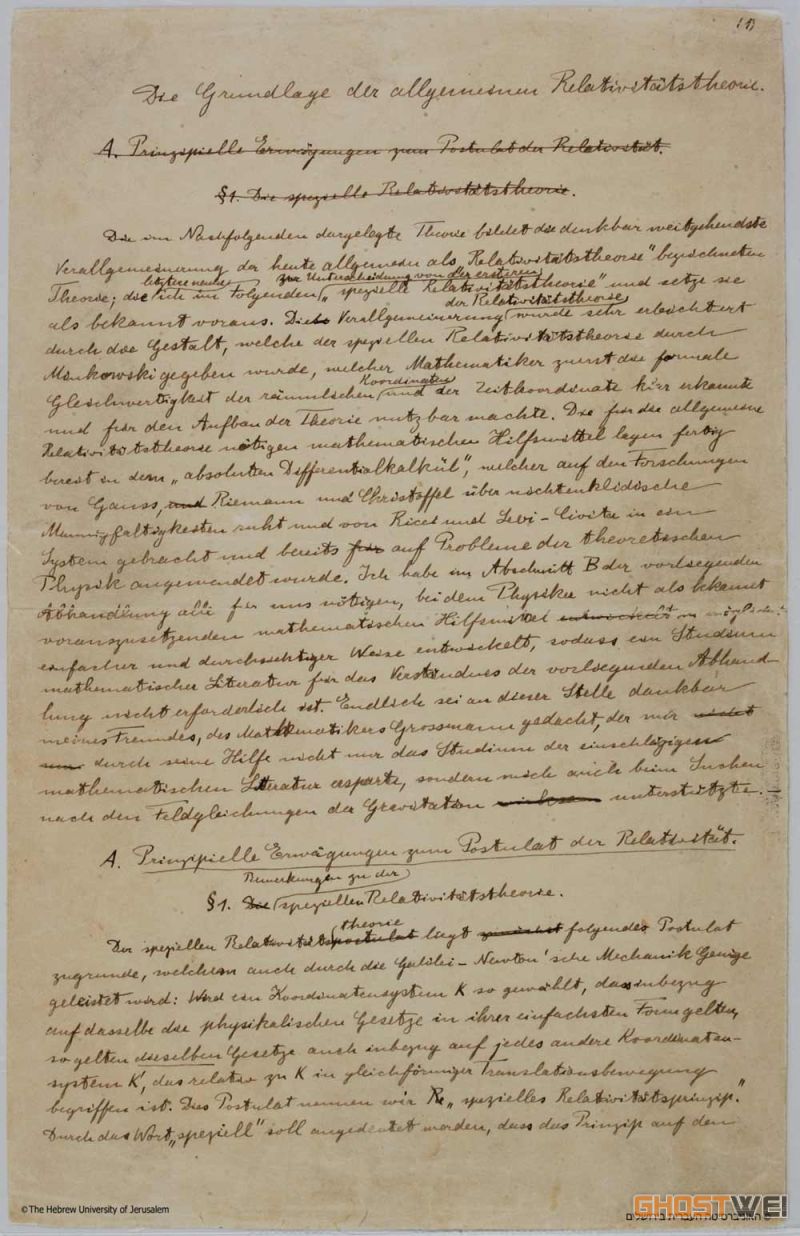 (1)
Die Grundlage der allgemeinen Relativitätstheorie.
A. Prinzipielle Erwägungen zum Postulat der Relativität.
§1. Die spezielle Relativitätstheorie.
Die im Nachfolgenden dargelegte Theorie bildet die denkbar weitgehendste
Verallgemeinerung der heute allgemein als „Relativitätstheorie" bezeichneten
letztere nenne zur Unterscheidung von der ersteren
Theorie; die ich im Folgenden „spezielle Relativitätstheorie" und setze sie
der Relativitätstheorie
als bekannt voraus. Die Verallgemeinerung wurde sehr erleichtert
durch die Gestalt, welche der speziellen Relativitätstheorie durch
Minkowski gegeben wurde, welcher Mathematiker zuerst die formale
Koordinaten
Gleichwertigkeit der räumlichen und der Zeitkoordinate klar erkannte
und für den Aufbau der Theorie nutzbar machte. Die für die allgemeine
Relativitätstheorie nötigen mathematischen Hilfsmittel lagen fertig
bereit in dem „absoluten Differentialkalkül", welcher auf den Forschungen
von Gauss, und Riemann und Christoffel über nichteuklidische
Mannigfaltigkeiten ruht und von Ricci und Levi-Civita in ein
System gebracht und bereits für auf Probleme der theoretischen
Physik angewendet wurde. Ich habe im Abschnitt B der vorliegenden
Abhandlung alle für uns nötigen, bei dem Physiker nicht als bekannt
vorauszusetzenden mathematischen Hilfsmittel entwickelt in möglichst
einfacher und durchsichtiger Weise entwickelt, sodass ein Studium
mathematischer Literatur für das Verständnis der vorliegenden Abhand-
lung nicht erforderlich ist. Endlich sei an dieser Stelle dankbar
meines Freundes, des Mathematikers Grossmann gedacht, der mir nicht
nur durch seine Hilfe nicht nur das Studium der einschlägigen
mathematischen Literatur ersparte, sondern mich auch beim Suchen
nach den Feldgleichungen der Gravitation unterstützte. —
A. Prinzipielle Erwägungen zum Postulat der Relativität.
Bemerkungen zu der
§1. Die speziellen Relativitätstheorie.
theorie
Der speziellen Relativitätspostulat liegt zunächst folgendes Postulat
zugrunde, welchem auch durch die Galilei-Newton'sche Mechanik Genüge
geleistet wird: Wird ein Koordinatensystem K so gewählt, dass inbezug
auf dasselbe die physikalischen Gesetze in ihrer einfachsten Form gelten,
so gelten dieselben Gesetze auch inbezug auf jedes andere Koordinaten-
system K', das relativ zu K in gleichförmiger Translationsbewegung
begriffen ist. Dies Postulat nennen wir „spezielles Relativitätsprinzip."
Durch das Wort „speziell" soll angedeutet werden, dass das Prinzip auf den
©The Hebrew University of Jerusalem
GHOSTWEI
© האוניברסיטה העברית בירושלים